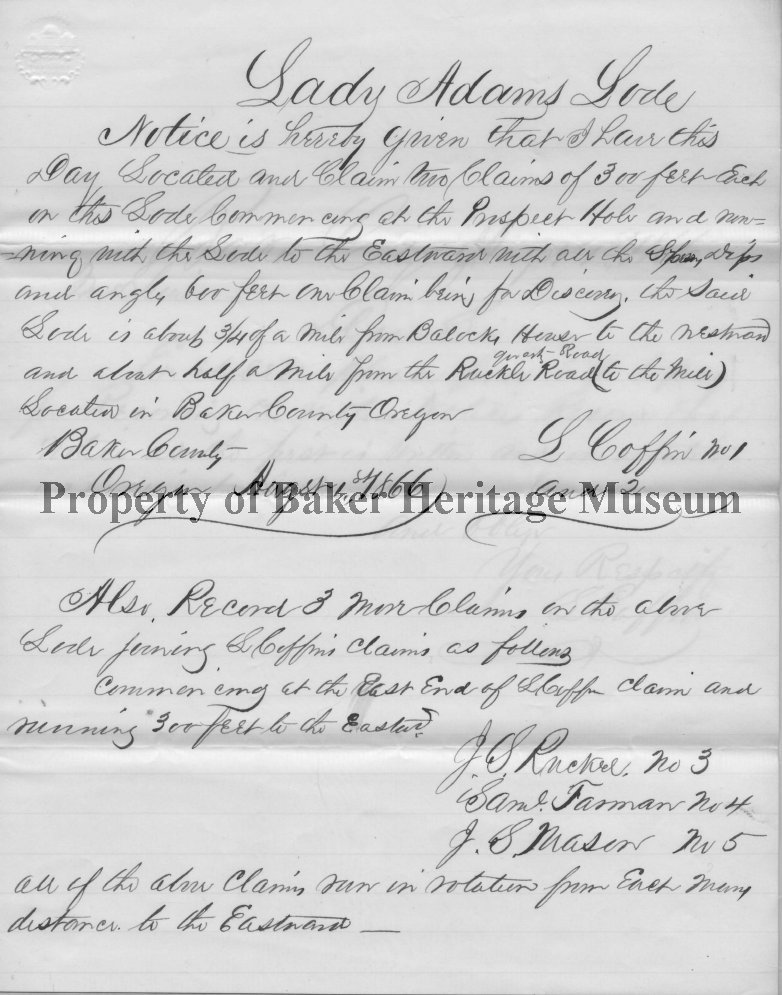 Lady Adams Lode
Notice is hereby given that I have this
Day Located and Claim two Claims of 300 feet Each
on this Lode Commencing at the Prospect Hole and run=
=ning with the Lode to the Eastward with all the Spurs, Dips
and angles 600 feet one Claim being for Discovery. the Said
Lode is about 3/4 of a Mile from Balocks House to the westward
Road
and about half a Mile from the Ruckle Road (to the Mill)
Located in Baker County Oregon
Baker County
L Coffin No 1
Oregon August 1st 1866
and 2
Property of Baker Heritage Museum
Also, Record 3 More Claims on the above
Lode joining L Coffins Claims as follows
Commencing at the East End of L Coffin Claim and
running 300 feet to the Eastwd
J. S. Ruckel. No 3
Saml. Tarman No 4
J. S. Mason No 5
all of the above Claims run in rotation from Each Mans
distance. to the Eastward —